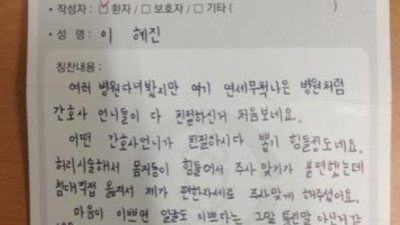 • 작성자 : ☑환자 / □보호자 / □기타 (          )
• 성 명 : 이 혜진
칭찬내용 :
여러 병원다녀봤지만 여기 연세무척나은 병원처럼
간호사 언니들이 다 친절하신거 처음보네요.
어떤 간호사언니가 친절하시다 뽑기 힘들정도네요.
허리시술해서 몸거동이 힘들어서 주사 맞기가 불편했는데
침대직접 옮겨서 제가 편한자세로 주사맞게 해주셨어요.
마음이 이쁘면 얼굴도 이쁘다는 그말 틀린말 아닌거같